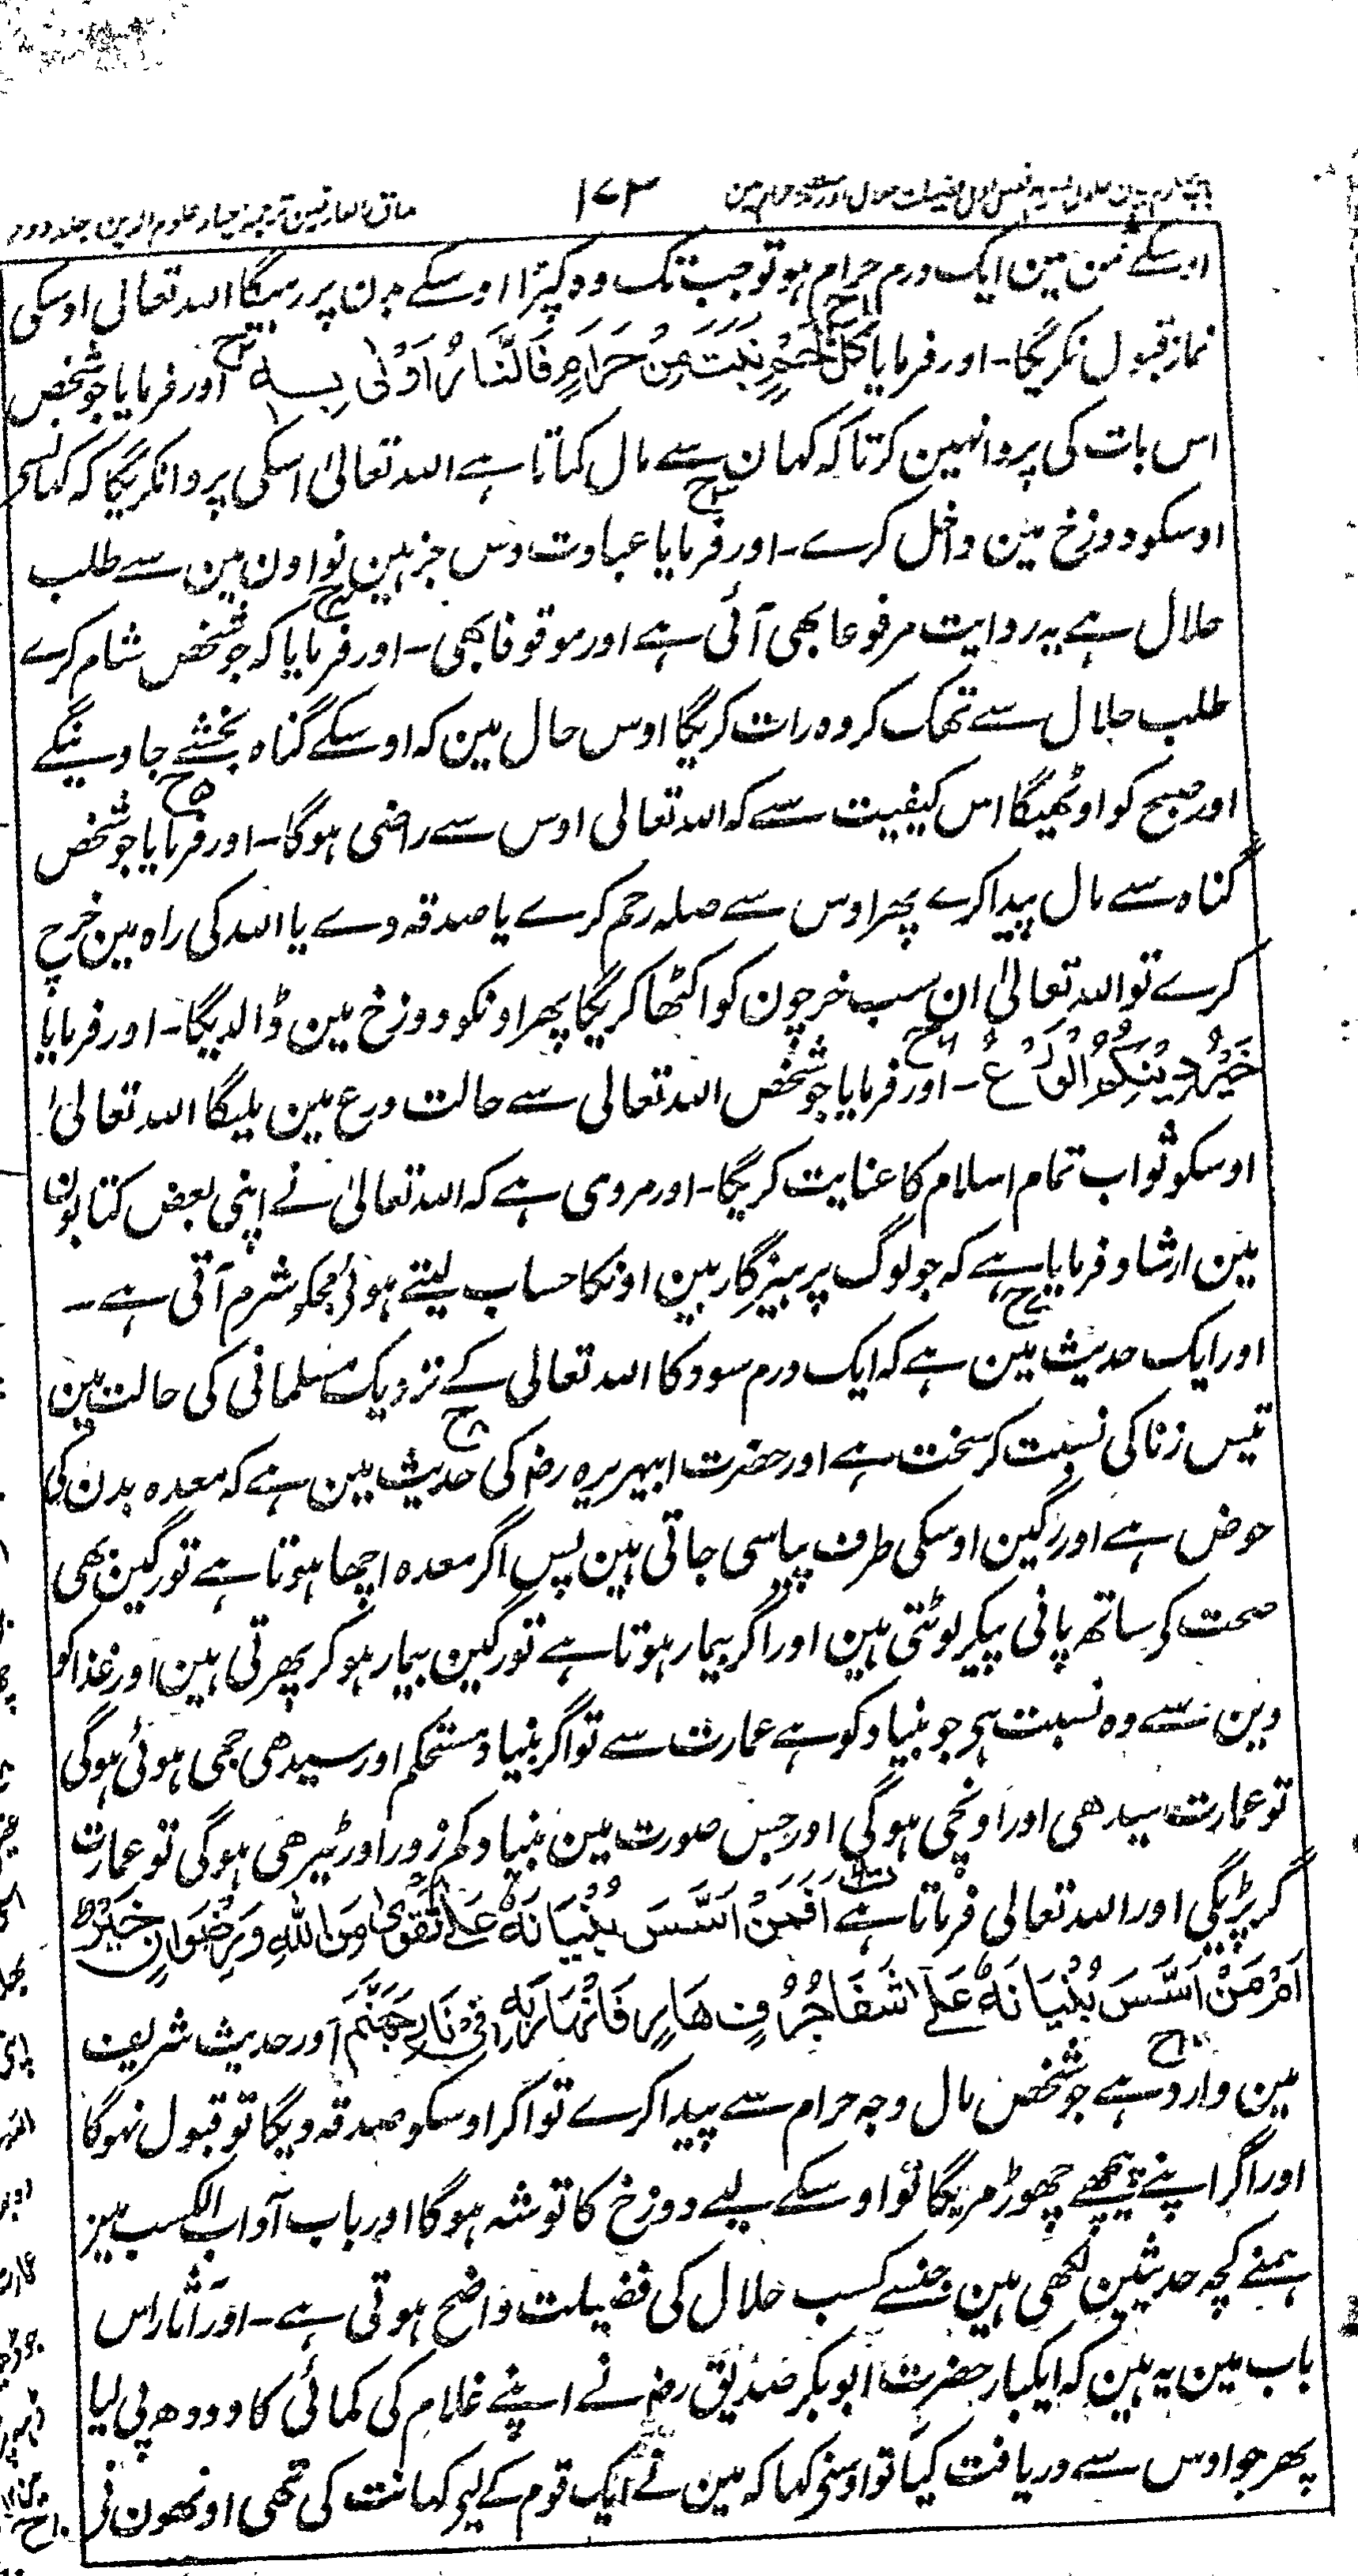 مذاق العارفین ترجمہ احیاء علوم الدین جلد دوم
۱۷۳
اوسکے ثمن مین ایک درم حرام ہو تو جب تک وہ کپڑا اوسکے بدن پر رہیگا اللہ تعالی اوسکی
نماز قبول نکریگا۔ اور فرمایا کُلُّ لَحْمٍ نَبَتَ مِنْ حَرَامٍ فَالنَّارُ اَوْلٰی بِہٖ اور فرمایا جو شخص
اس بات کی پروا نہین کرتا کہ کہان سے مال کماتا ہے اللہ تعالیٰ اسکی پروا نکریگا کہ کہانسے
اوسکو دوزخ مین داخل کرے۔ اور فرمایا عبادت دس جز ہین نو اون مین سے طلب
حلال ہے یہ روایت مرفوعا بھی آئی ہے اور موقوفا بھی۔ اور فرمایا کہ جو شخص شام کرے
طلب حلال سے تھک کر وہ رات کریگا اوس حال مین کہ اوسکے گناہ بخشے جاوینگے
اور صبح کو اوٹھیگا اس کیفیت سے کہ اللہ تعالی اوس سے راضی ہوگا۔ اور فرمایا جو شخص
گناہ سے مال پیدا کرے پھر اوس سے صلہ رحم کرے یا صدقہ دے یا اللہ کی راہ مین خرچ
کرے تو اللہ تعالیٰ ان سب خرچون کو اکٹھا کریگا پھر اونکو دوزخ مین ڈالدیگا۔ اور فرمایا
خَیْرُ دِیْنِکُمُ الْوَرَعُ۔ اور فرمایا جو شخص اللہ تعالی سے حالت ورع مین ملیگا اللہ تعالیٰ
اوسکو ثواب تمام اسلام کا عنایت کریگا۔ اور مروی ہے کہ اللہ تعالیٰ نے اپنی بعض کتابون
مین ارشاد فرمایا ہے کہ جو لوگ پرہیزگار ہین اونکا حساب لیتے ہوئے مجکو شرم آتی ہے۔
اور ایک حدیث مین ہے کہ ایک درم سود کا اللہ تعالی کے نزدیک مسلمانی کی حالت مین
تیس زنا کی نسبت کر سخت ہے اور حضرت ابیہریرہ رضہ کی حدیث مین ہے کہ معدہ بدن کی
حوض ہے اور رگین اوسکی طرف پیاسی جاتی ہین پس اگر معدہ اچھا ہوتا ہے تو رگین بھی
صحت کے ساتھ پانی پیکر لوٹتی ہین اور اگر بیمار ہوتا ہے تو رگین بیمار ہوکر پھرتی ہین اور غذا کو
دین سے وہ نسبت ہے جو بنیاد کو ہے عمارت سے تو اگر بنیاد مستحکم اور سیدھی جمی ہوئی ہوگی
تو عمارت سیدھی اور اونچی ہوگی اور جس صورت مین بنیاد کمزور اور ٹیڑھی ہوگی تو عمارت
گر پڑیگی اور اللہ تعالی فرماتا ہے اَفَمَنْ اَسَّسَ بُنْیَانَہٗ عَلٰی تَقْوٰی مِنَ اللّٰہِ وَرِضْوَانٍ خَیْرٌ
اَمْ مَنْ اَسَّسَ بُنْیَانَہٗ عَلٰی شَفَا جُرُفٍ ھَارٍ فَانْھَارَ بِہٖ فِیْ نَارِ جَھَنَّمَ اور حدیث شریف
مین وارد ہے جو شخص مال وجہ حرام سے پیدا کرے تو اگر اوسکو صدقہ دیگا تو قبول نہوگا
اور اگر اپنے پیچھے چھوڑ مریگا تو اوسکے لیے دوزخ کا توشہ ہوگا اور باب آداب الکسب مین
ہمنے کچہ حدیثین لکھی ہین جنسے کسب حلال کی فضیلت واضح ہوتی ہے۔ اور آثار اس
باب مین یہ ہین کہ ایکبار حضرت ابو بکر صدیق رضہ نے اپنے غلام کی کمائی کا دودھ پی لیا
پھر جو اوس سے دریافت کیا تو اوسنے کہا کہ مین نے ایک قوم کے لیے کہانت کی تھی اونھون نے